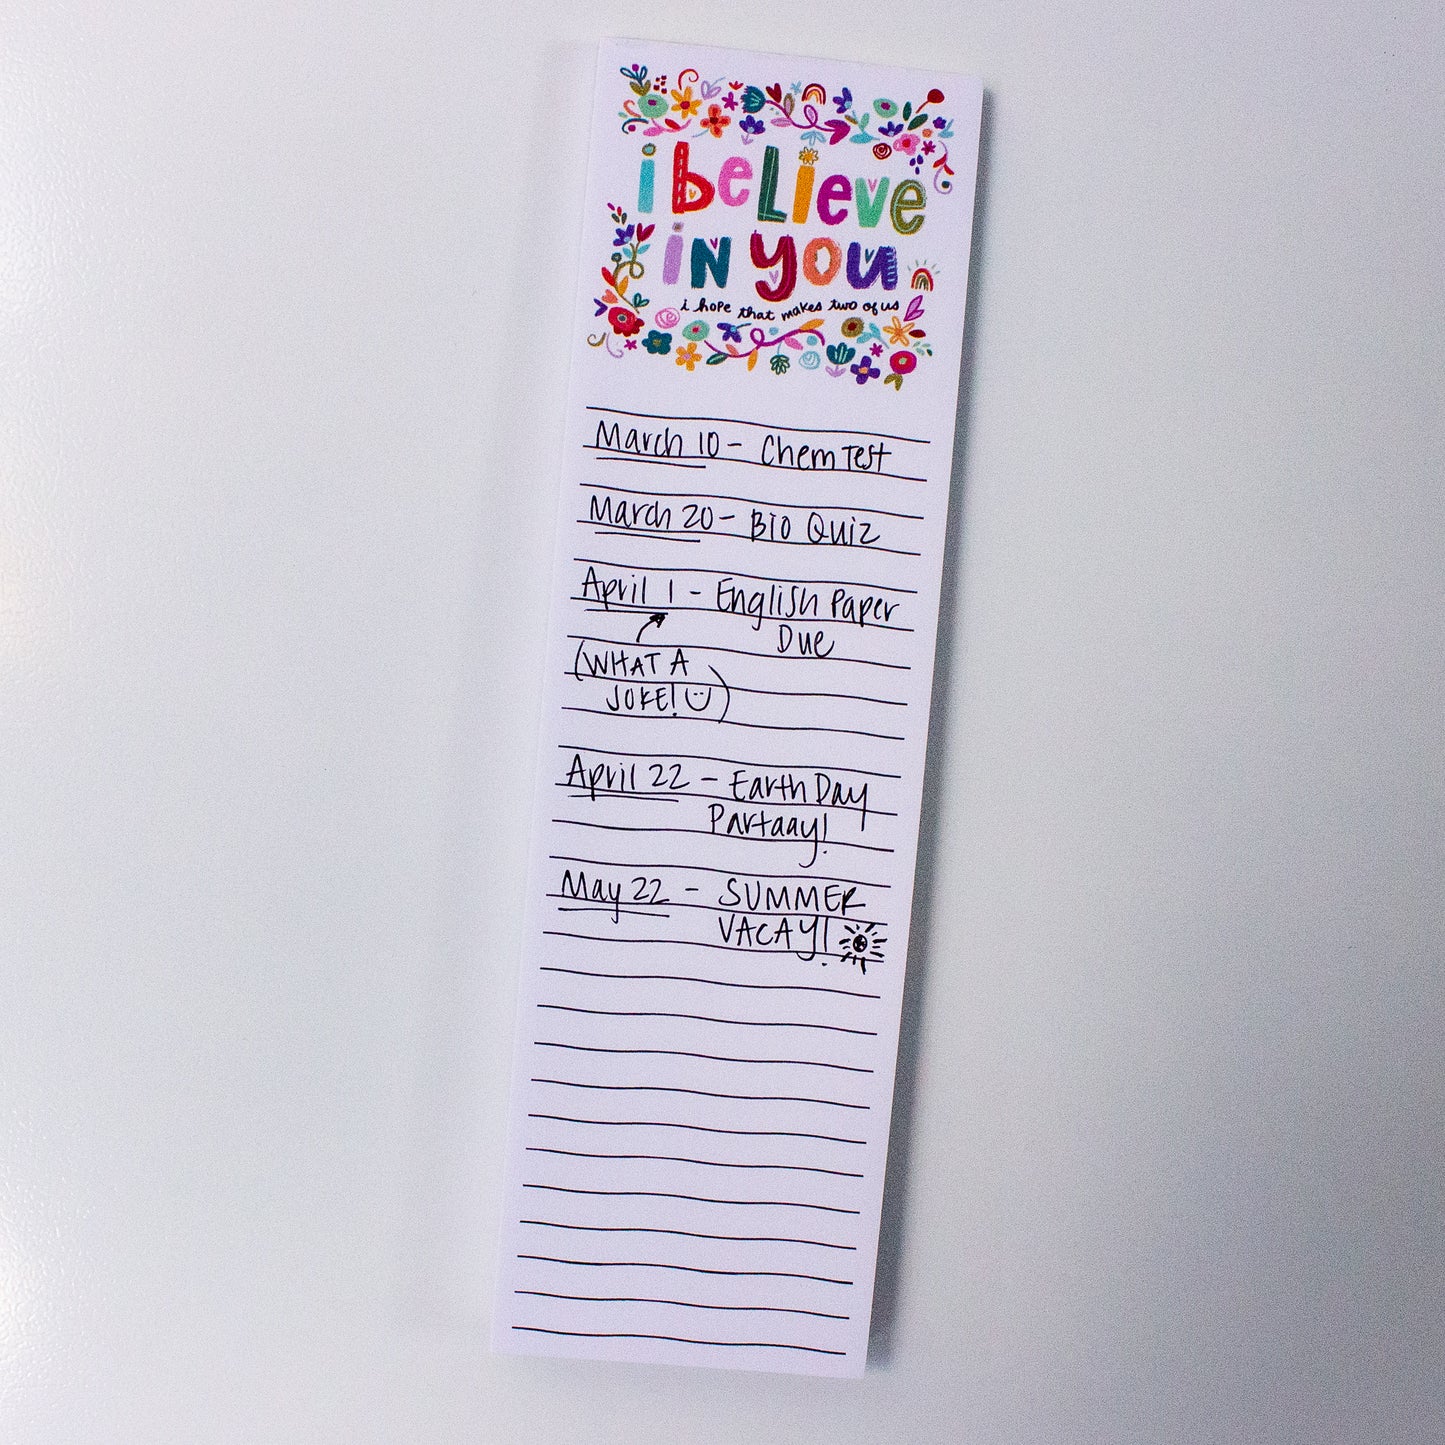 i believe
in you
i hope that makes two of us
March 10 - Chem Test
March 20 - Bio Quiz
April 1 - English Paper
Due
(WHAT A
JOKE!)
April 22 - Earth Day
Partaay!
May 22 - SUMMER
VACAY!